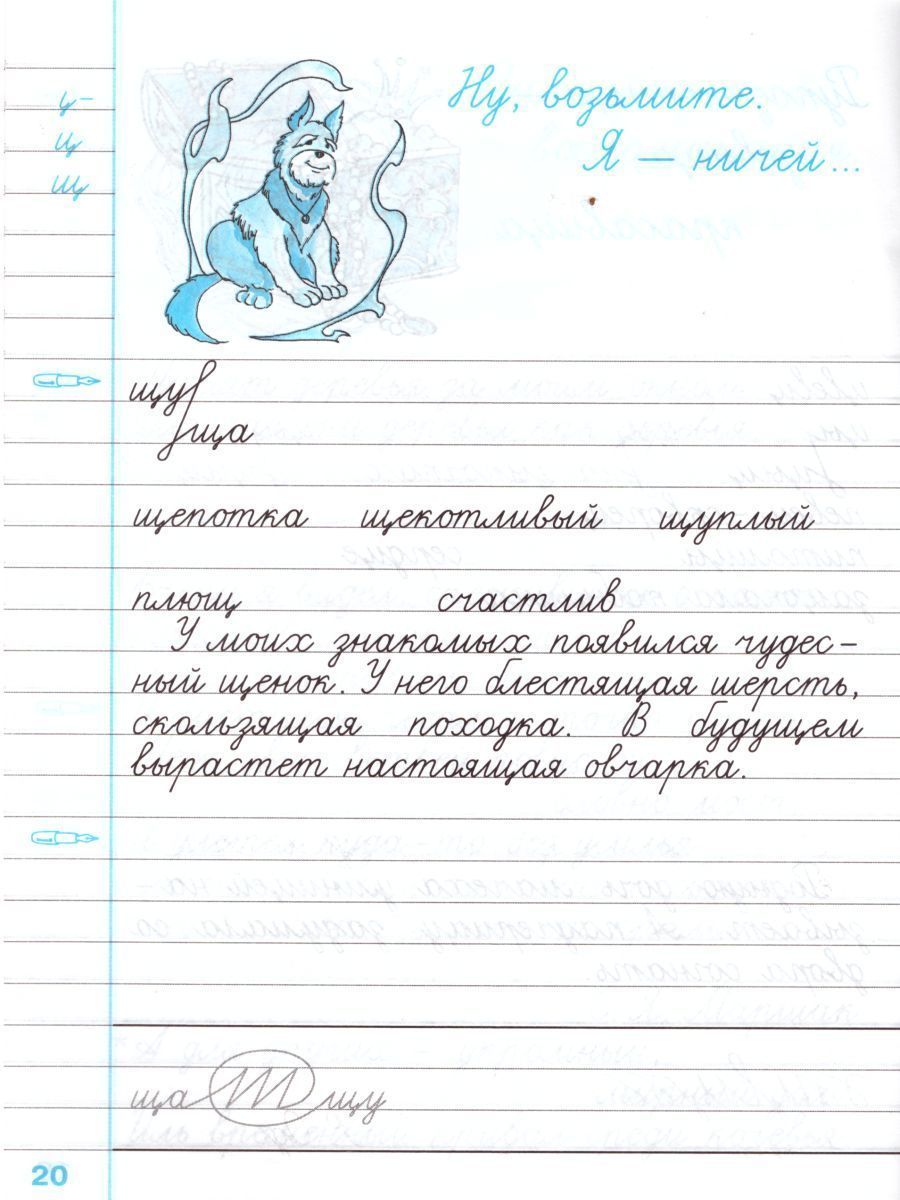 Ну, возьмите.
Я — ничей...
у-
ц
щ
щу
ща
щепотка щекотливый щуплый
плющ счастлив
У моих знакомых появился чудес-
ный щенок. У него блестящая шерсть,
скользящая походка. В будущем
вырастет настоящая овчарка.
ща щу
20